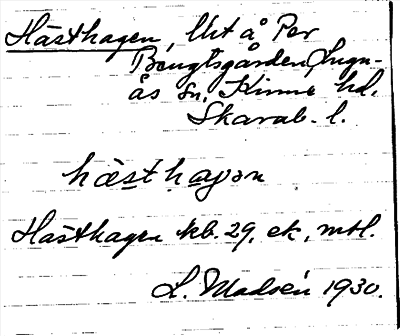 Hästhagen, lht å Per
Bengtsgården, Lugn-
ås sn, Kinne hd,
Skarab. l.
hȧ̀st hagən
Hästhagen kb. 29, ek, mtl.
L. Madsén 1930.